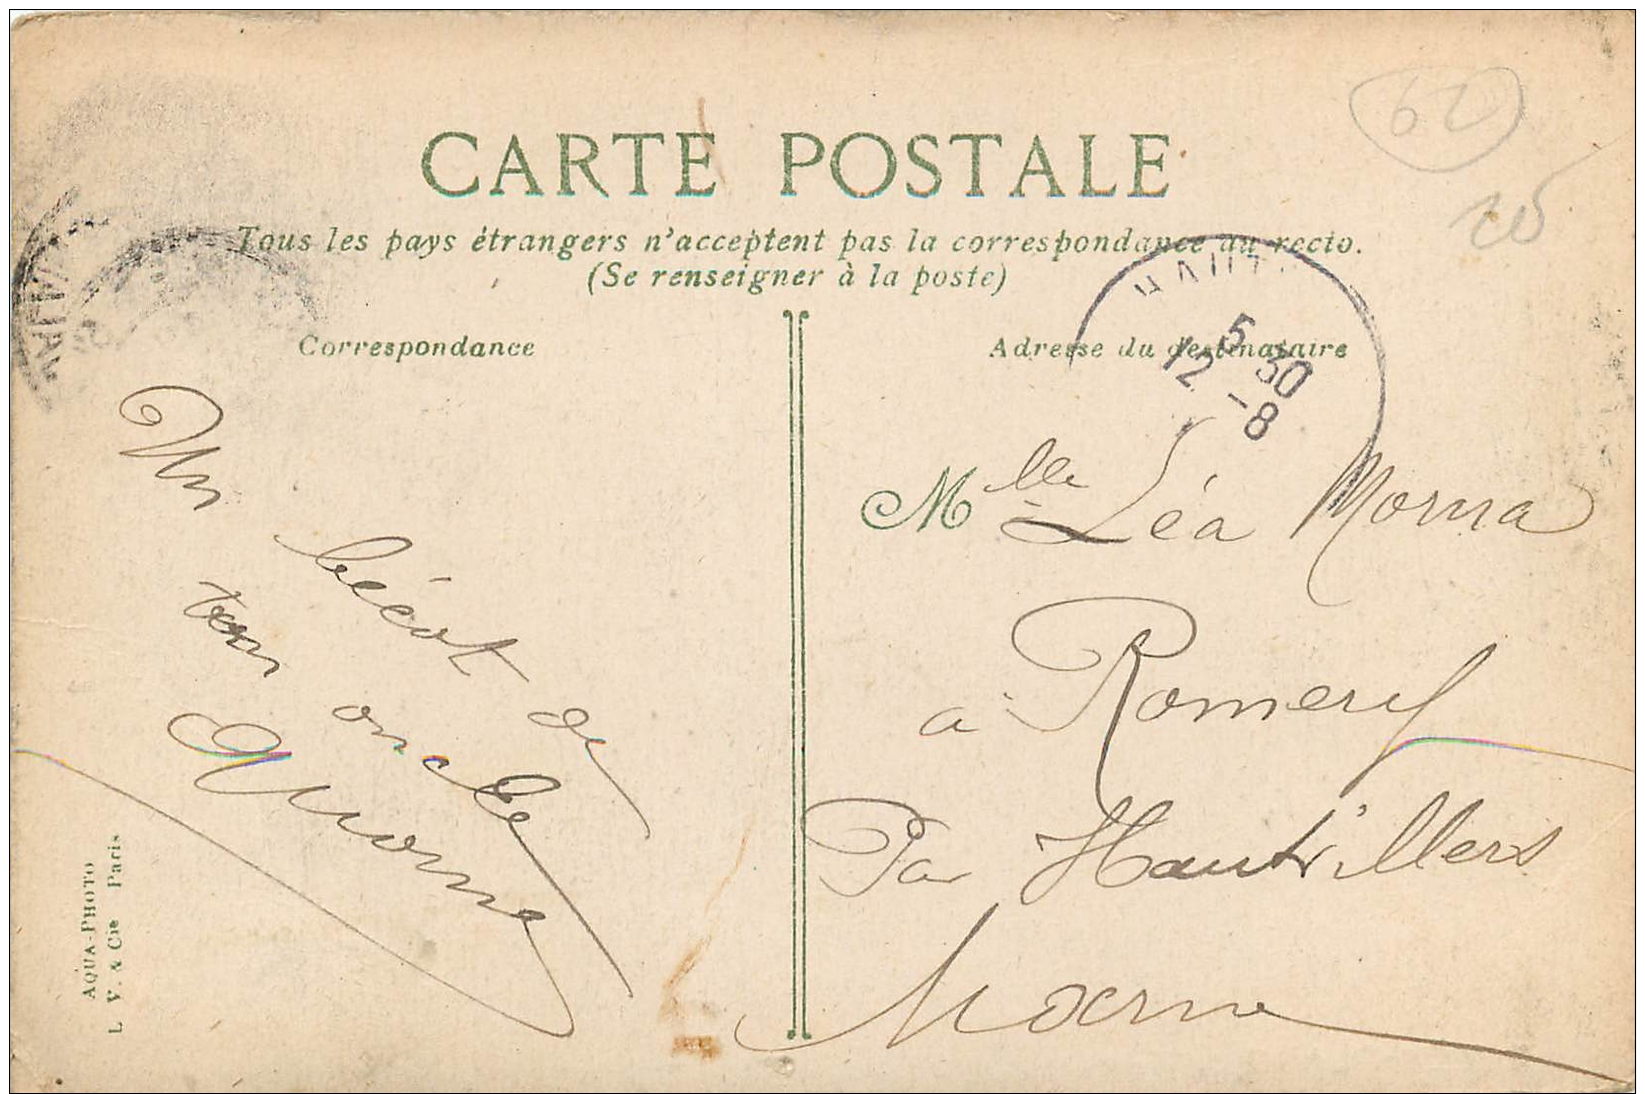 62
CARTE POSTALE
Tous les pays étrangers n'acceptent pas la correspondance au recto.
(Se renseigner à la poste)
HAUT
5 30
12 -8
Correspondance
Un
bécot de
ton oncle
Adresse du destinataire
Mlle Léa Morna
à Romery
Par Hautvillers
Marne
AQUA-PHOTO
L. V. & Cie Paris